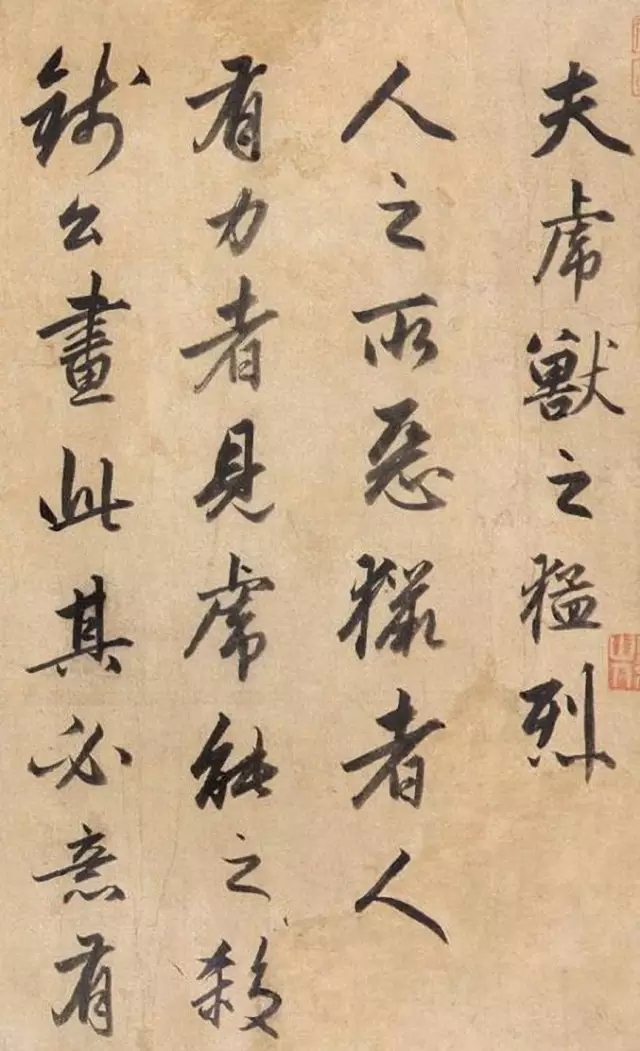 夫虎獸之猛烈
人之所惡獵者人
有力者見虎能之殺
錢公畫此其必意有